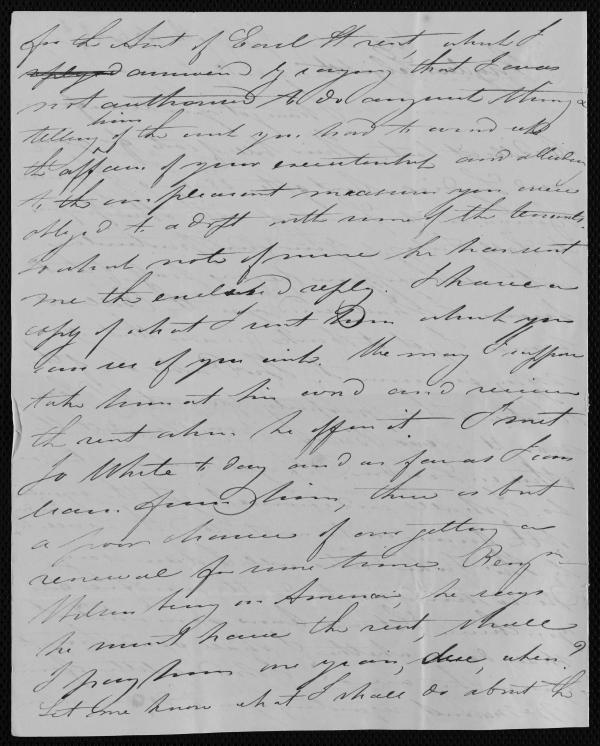 for the Amt of Earl St rent which I
replyed answered by saying that I was
not authorised to do any such thing &
telling him of the end you had to wind up
the affairs of your executorship and
to the unpleasant measures you were
obliged to adopt with some of the tenants,
to which note of mine he has sent
me the enclosed reply. I have a
copy of what I sent him which you
can see if you wish. We may I suppose
take him at his word and receive
the rent when he offers it I met
Jo White to day and as far as I can
learn from him, there is but
a poor chance of our getting a
renewal for some time. Benjn
Wilson being in America, he says
he must have the rent, shall
I pay him one year, due, when?
Let me know what I shall do about the